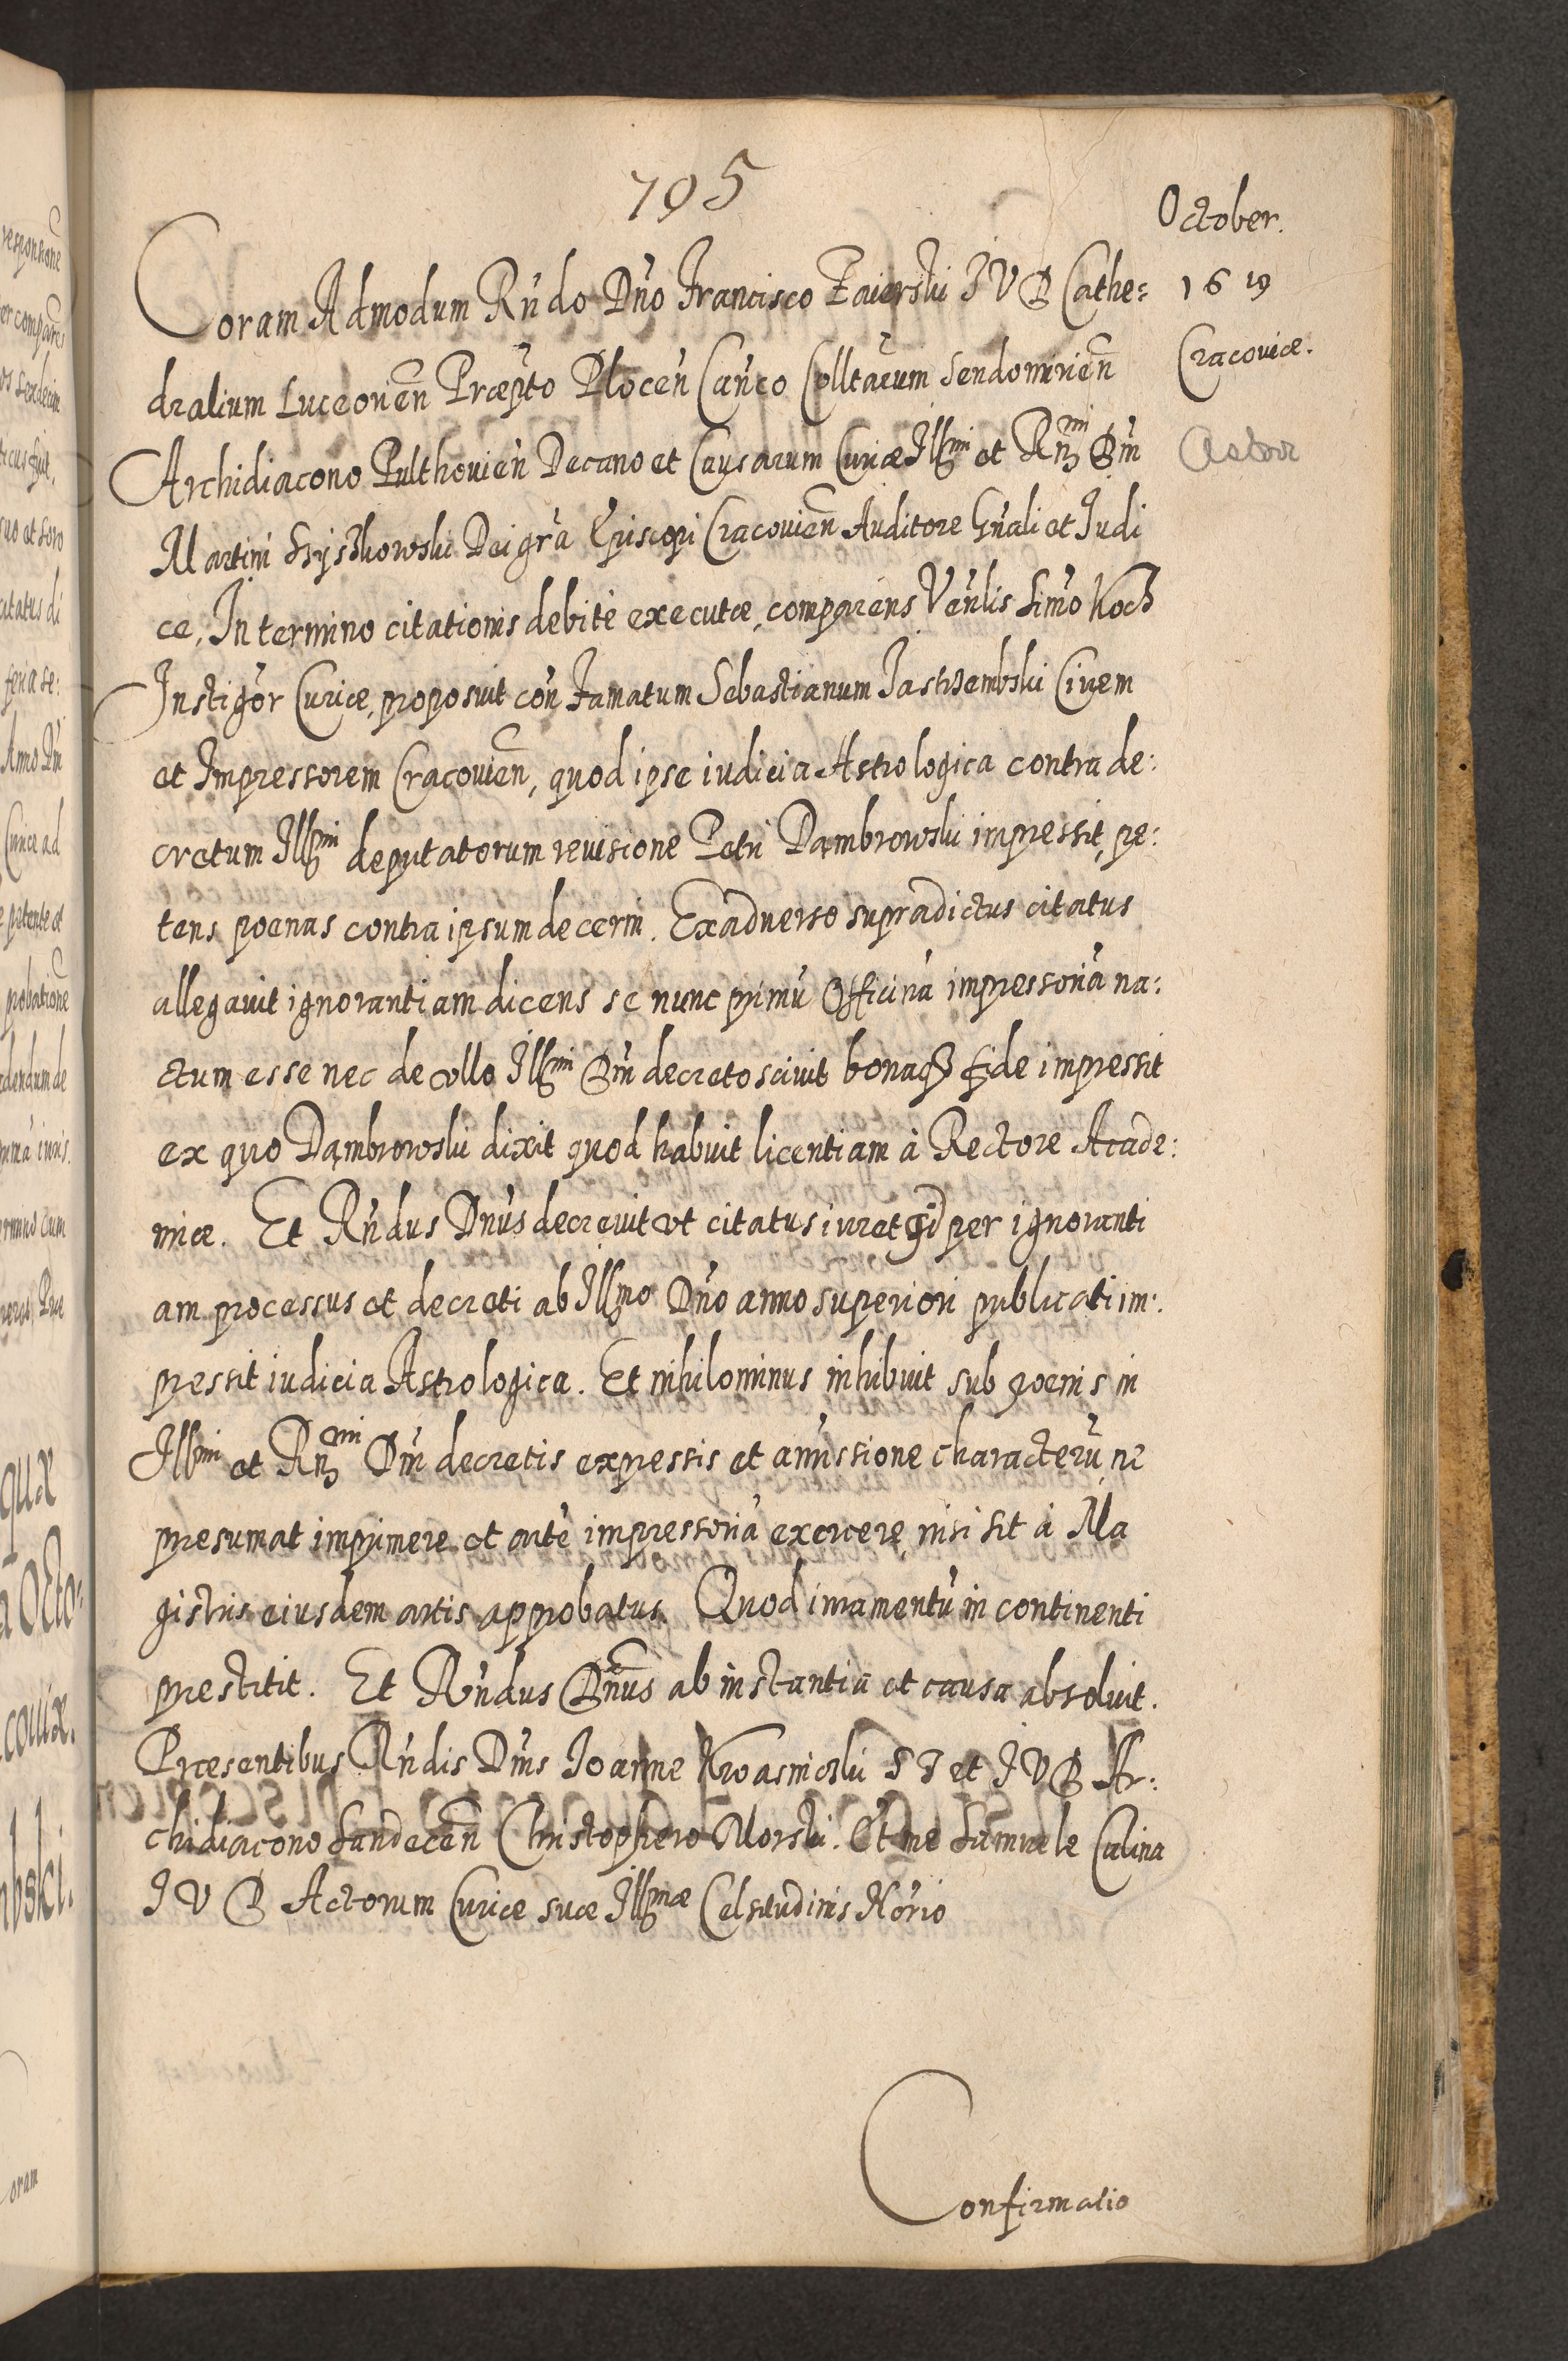 705
October.
1619
Cracoviæ.
Coram Admodum Rn̄do Dn̄o Francisco Zaierski I V D Cathe:
dralium Luceorien̄ Præpto Plocen̄ Can̄co Colltarum Sendomirien̄
Archidiacono Pulthovien̄ Decano et Causarum Curiæ Illmi et Rn̄mi Dn̄i
Martini Szyszkowski Dei gr̄a Episcopi Cracovien̄ Auditore Gn̄ali et Judi
ce, In termino citationis debitè executæ, comparens Ven̄lis Simo Koch
Instigōr Curiæ, proposuit con̄ Famatum Sebastianum Jastrzembski Civem
et Impressorem Cracovien̄, quod ipse iudicia Astrologica contra de:
cretum Illmi deputatorum revisione Petri Dambrowski impressit, pe:
tens poenas contra ipsum decerni. Ex adverso supradictus citatus
allegavit ignorantiam dicens se nunc primū Officinā impressoriā na:
ctum esse nec de ullo Illmi Dn̄i decreto scivit bonaq3 fide impressit
ex quo Dambrowski dixit quod habuit licentiam à Rectore Acade:
miæ. Et Rn̄dus Dn̄us decrevit ut citatus iuret qd per ignoranti
am processus et decreti ab Illmo Dn̄o anno superiori publicati im:
pressit iudicia Astrologica. Et nihilominus inhibuit sub poenis in
Illmi et Rn̄mi Dn̄i decretis expressis et amissione characterū, ne
presumat imprimere et artē impressoriā exercere, nisi sit à Ma
gistris eiusdem artis approbatus. Quod iuramentū in continenti
prestitit. Et Rn̄dus Dn̄us ab instantia et causa absolvit.
Præsentibus Rn̄dis Dn̄is Joanne S T et I V D Ar:
chidiacono Sandecen̄ Christophero Morski. Et me Samuele Calina
I V D Actorum Curiæ suæ Illmæ Celsitudinis Nōrio
Confirmatio